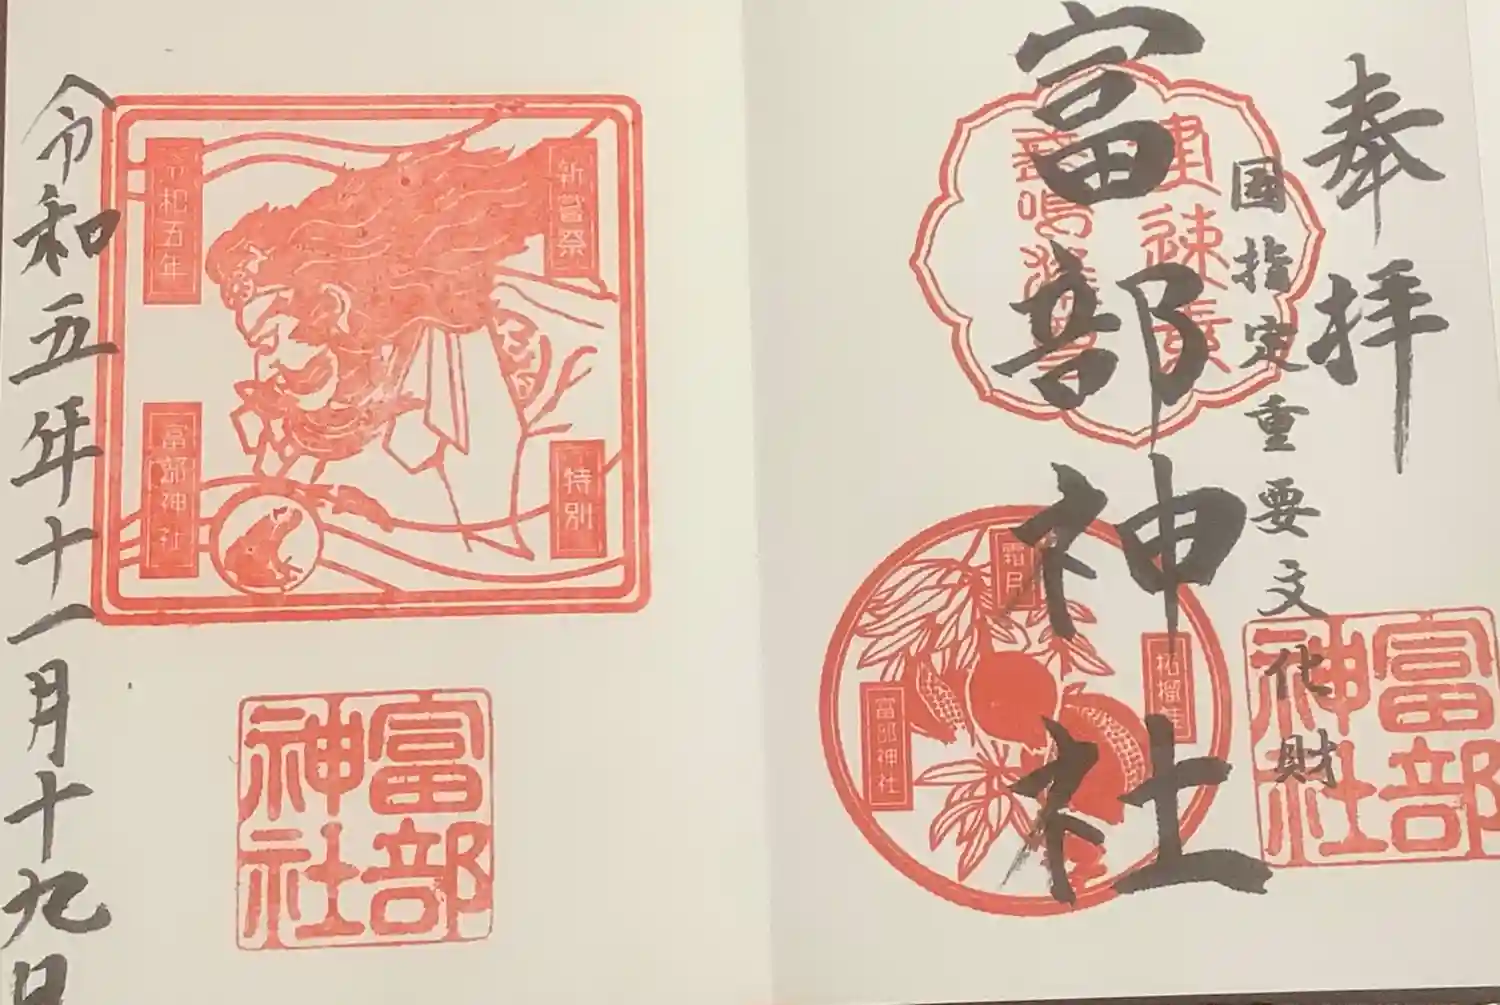 奉拝
国指定重要文化財
富部神社
建速素
富部神社
霜月
柘榴
富部神社
新嘗祭
特別
令和五年
富部神社
富部神社
令和五年十一月十九日